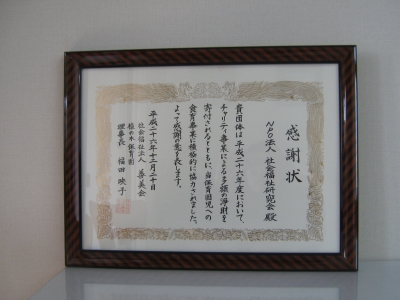 感謝状
NPO法人 社会福祉研究会 殿
貴団体は平成二十六年度において、
チャリティ事業による多額の浄財を
寄付されるとともに、当保育園児への
食育事業に積極的に協力されました。
よって感謝の意を表します。
平成二十六年十二月二十日
社会福祉法人 善美会
椎の木保育園
理事長 福田 映子